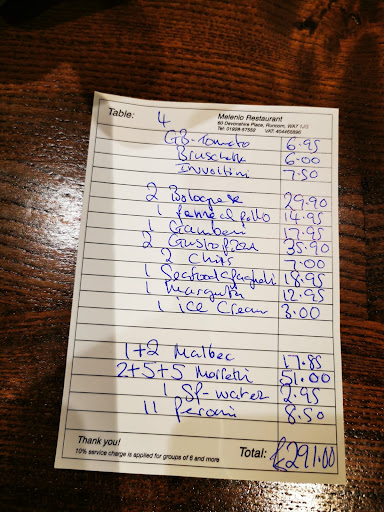 Table: 4 Melenio Restaurant
60 Devonshire Place, Runcorn, WA7 1JS
Tel: 01998-57552 VAT: 404465896
GB-Tomato 6.95
Bruschetta 6.00
Invoiltini 7.50
2 Bolognese 29.90
1 14.95
1 Gamberi 17.95
2 Gusto pizza 35.90
2 Chips 7.00
1 Seafood spaghetti 18.95
1 Margarita 12.95
1 ice cream 3.00
1+2 Malbec 17.85
2+5+5 Morretti 51.00
1 Sp-water 2.95
11 Peroni 8.50
Thank you!
10% service charge is applied for groups of 6 and more
Total: £291.00